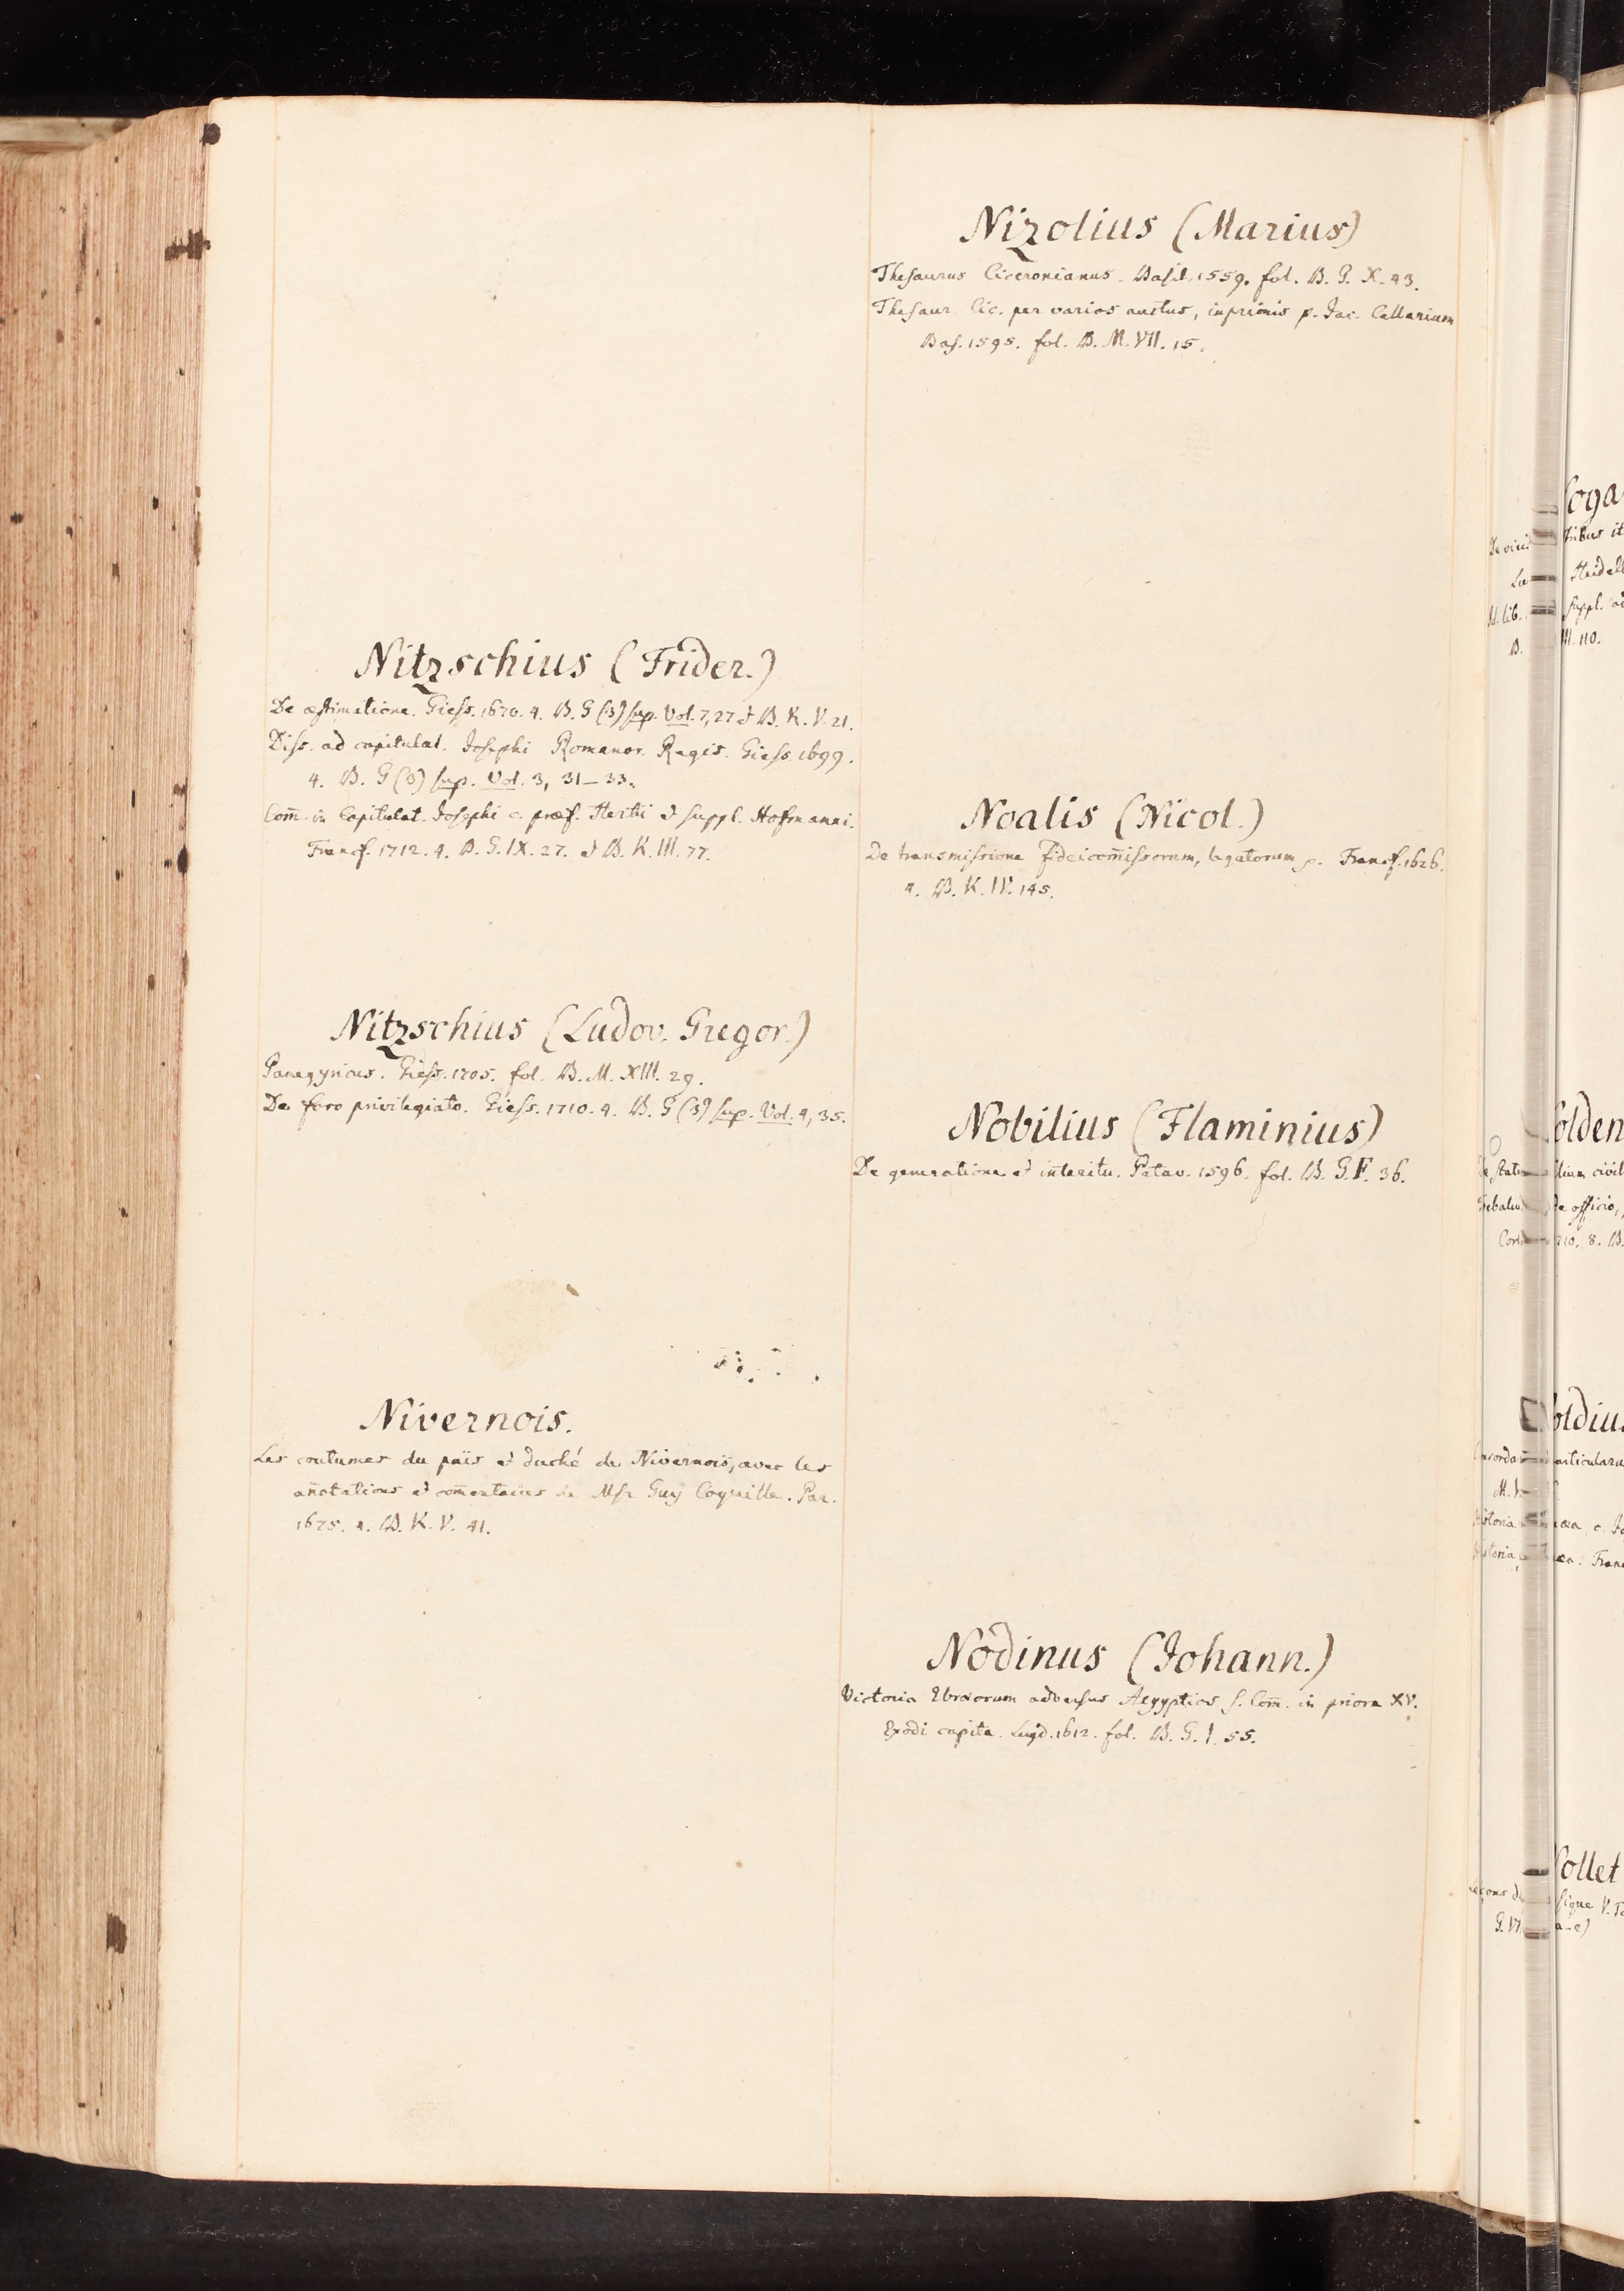 Nitzschius (Frider.)
De æstimatione. Giess. 1670. 4. B. G (3) sup. Vol. 7, 27 & B. K. V. 21.
Diss. ad capitulat. Josephi Romanor. Regis. Giess. 1699.
4. B. G (3) sup. Vol. 3, 31–33.
Com̄. in Capitulat. Josephi c. præf. Hertii & suppl. Hofmanni.
Francf. 1712. 4. B. G. IX. 27. & B. K. III. 77.
Nitzschius (Ludov. Gregor.)
Panegyricus. Giess. 1705. fol. B. M. XIII. 29.
De foro privilegiato. Giess. 1710. 4. B. G (3) sup. Vol. 4, 35.
Nivernois.
Les coutumes du païs & duché de Nivernois, avec les
an̄otations & com̄entaires de Msr Guy Coquille. Par.
1625. 4. B. K. V. 41.
Nizolius (Marius)
Thesaurus Ciceronianus. Basil. 1559. fol. B. G. X. 43.
Thesaur. Cic. per varios auctus, inprimis p. Jac. Cellarium
Bas. 1595. fol. B. M. VII. 15.
Noalis (Nicol.)
De transmissione fideicom̄issorum, legatorum p. Francf. 1626.
4. B. K. IV. 145.
Nobilius (Flaminius)
De generatione & interitu. Patav. 1596. fol. B. G. F. 36.
Nodinus (Johann.)
Victoria Ebræorum adversus Aegyptios s. Com̄. in priora XV.
Exodi capita. Lugd. 1612. fol. B. G. I. 55.